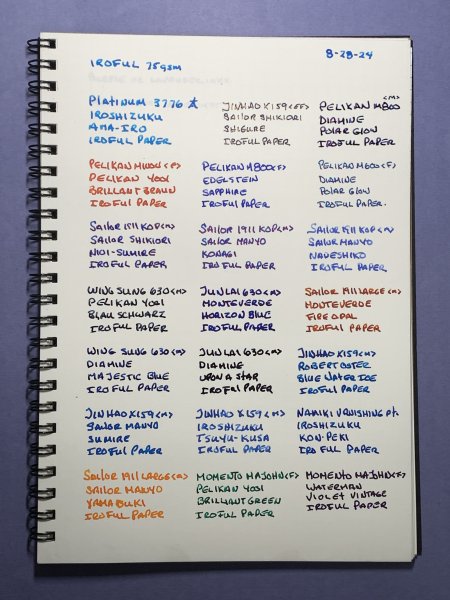 8-28-24
IROFUL 75gsm
PLATINUM 3776
IROSHIZUKU
AMA-IRO
IROFUL PAPER
JINHAO X159 <EF>
SAILOR SHIKIORI
SHIGURE
IROFUL PAPER
<M>
PELIKAN M800
DIAMINE
POLAR GLOW
IROFUL PAPER
PELIKAN <F>
PELIKAN 4001
BRILLANT BRAUN
IROFUL PAPER
PELIKAN M800 <F>
EDELSTEIN
SAPPHIRE
IROFUL PAPER
PELIKAN M600 <F>
DIAMINE
POLAR GLOW
IROFUL PAPER.
SAILOR 1911 KOP <M>
SAILOR SHIKIORI
NIOI-SUMIRE
IROFUL PAPER
SAILOR 1911 KOP <M>
SAILOR MANYO
KONAGI
IROFUL PAPER
SAILOR 1911 KOP <M>
SAILOR MANYO
NADESHIKO
IROFUL PAPER
WING SUNG 630 <M>
PELIKAN 4001
BLAU SCHWARZ
IROFUL PAPER
JUNLAI 630 <M>
MONTEVERDE
HORIZON BLUE
IROFUL PAPER
SAILOR 1911 LARGE <M>
MONTEVERDE
FIRE OPAL
IROFUL PAPER
WING SUNG 630 <M>
DIAMINE
MAJESTIC BLUE
IROFUL PAPER
JUNLAI 630 <M>
DIAMINE
UPON A STAR
IROFUL PAPER
JINHAO X159 <M>
ROBERT OSTER
BLUE WATER ICE
IROFUL PAPER
JINHAO X159 <M>
SAILOR MANYO
SUMIRE
IROFUL PAPER
JINHAO X159 <M>
IROSHIZUKU
TSUYU-KUSA
IROFUL PAPER
NAMIKI VANISHING Pt.
IROSHIZUKU
KON-PEKI
IROFUL PAPER
SAILOR 1911 LARGE <M>
SAILOR MANYO
YAMABUKI
IROFUL PAPER
MOMENTO MAJOHN <F>
PELIKAN 4001
BRILLIANT GREEN
IROFUL PAPER
MOMENTO MAJOHN <F>
WATERMAN
VIOLET VINTAGE
IROFUL PAPER